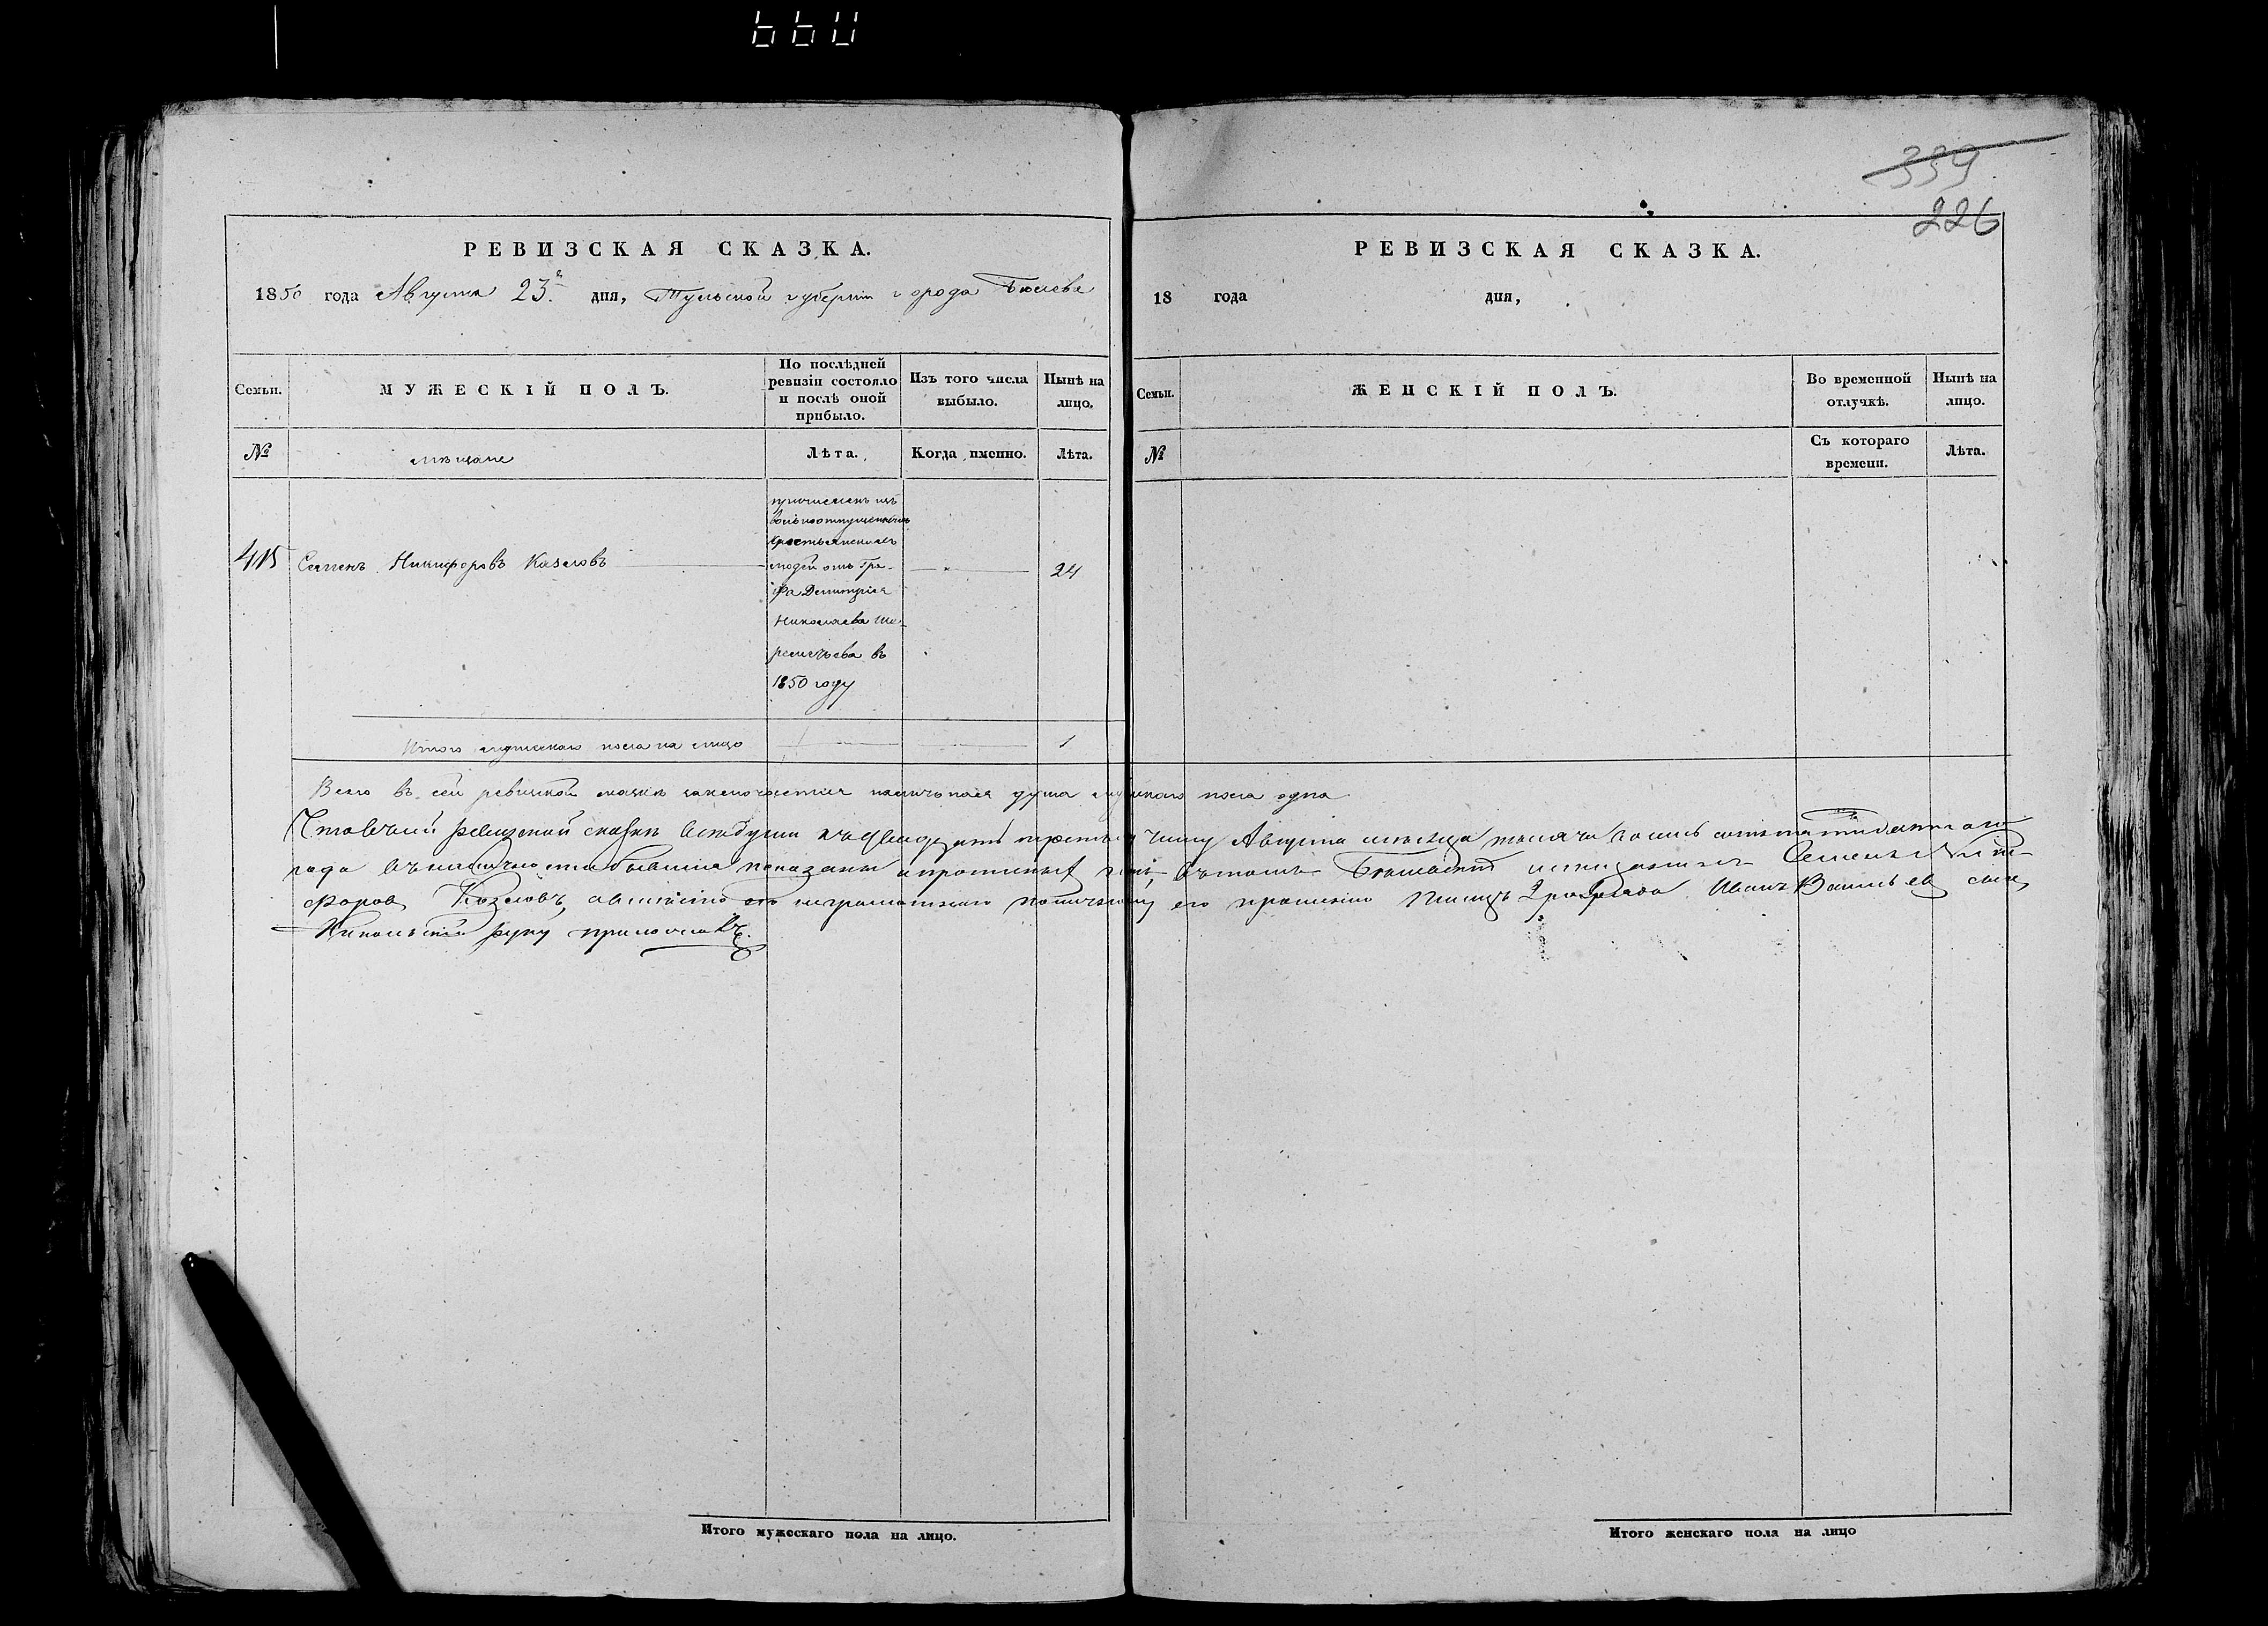 339
226
РЕВИЗСКАЯ СКАЗКА.
1850 года Августа 23го дня, Тульской губернии города Бѣлева
Семьи.
МУЖЕСКІЙ ПОЛЪ.
По послѣдней
ревизіи состояло
и послѣ оной
прибыло.
Изъ того числа
выбыло.
Нынѣ на
лицо.
№
мѣщане
Лѣта.
Когда именно.
Лѣта.
415
Семенъ Никифоровъ Казловъ
причисленъ изъ
вольноотпущенныхъ
крестьянскихъ
людей отъ Гра-
фа Демитрія
Николаева Ше-
реметьева въ
1850 году
24
Итого мужескаго пола на лицо
1
1
Всего въ сей ревизской сказкѣ заключается наличная душа мужскаго пола одна
Что въ сей ревизской сказкѣ всѣ души къ двадцать третьему числу Августа мѣсяца тысяча восемь сотъ пятидесятаго
года въ наличности бывшія показаны и прописныхъ нѣтъ, въ томъ Бѣлевскій мѣщанинъ Семенъ Ники-
форовъ Козловъ, а вмѣсто его неграмотнаго по личному его прошенію Писецъ 2го разряда Иванъ Васильевъ сынъ
Никольскій руку приложилъ.
Итого мужескаго пола на лицо.
РЕВИЗСКАЯ СКАЗКА.
18 года дня,
Семьи.
ЖЕНСКІЙ ПОЛЪ.
Во временной
отлучкѣ.
Нынѣ на
лицо.
№
Съ котораго
времени.
Лѣта.
Итого женскаго пола на лицо